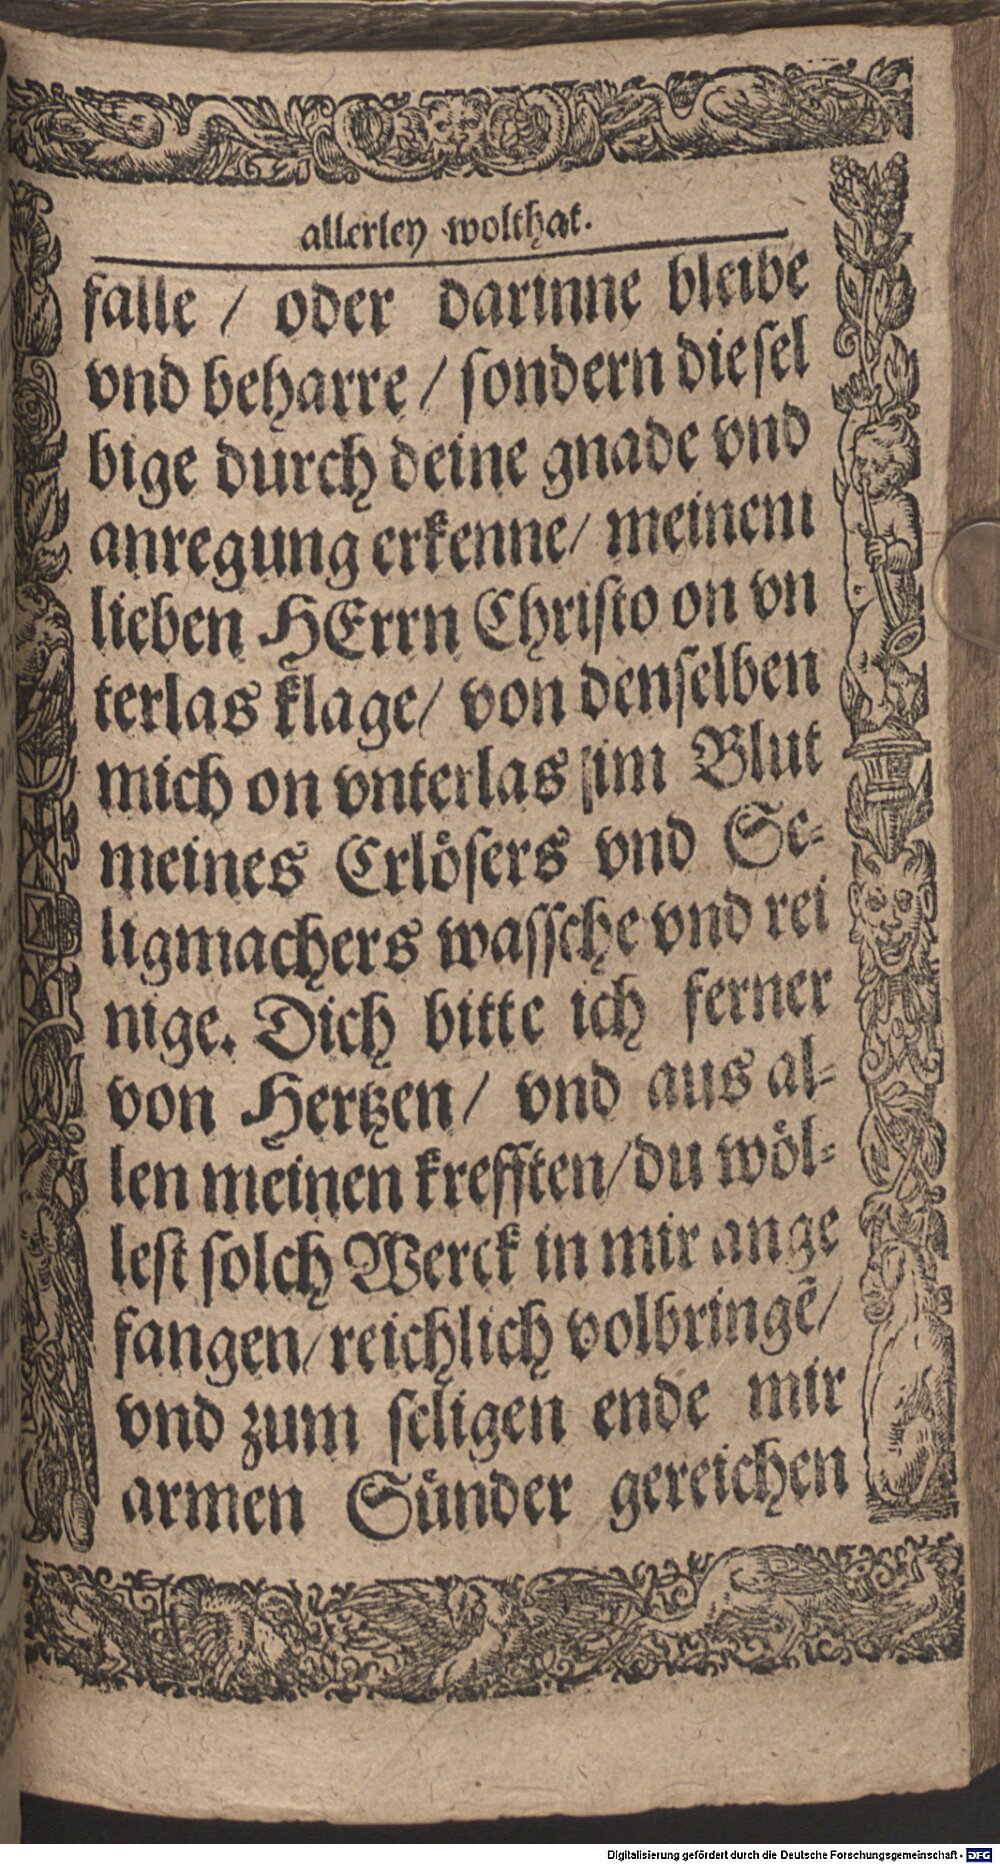 allerley wolthat.
falle / oder darinne bleibe
vnd beharre / ſondern dieſel
bige durch deine gnade vnd
anregung erkenne / meinem
lieben HErrn Chriſto on vn
terlas klage / von denſelben
mich on vnterlas im Blut
meines Erlöſers vnd Se-
ligmachers waſſche vnd rei
nige. Dich bitte ich ferner
von Hertzen / vnd aus al-
len meinen krefften / du wöl-
leſt ſolch Werck in mir ange
fangen / reichlich volbringẽ /
vnd zum ſeligen ende mir
armen Sünder gereichen
Digitalisierung gefördert durch die Deutsche Forschungsgemeinschaft - DFG